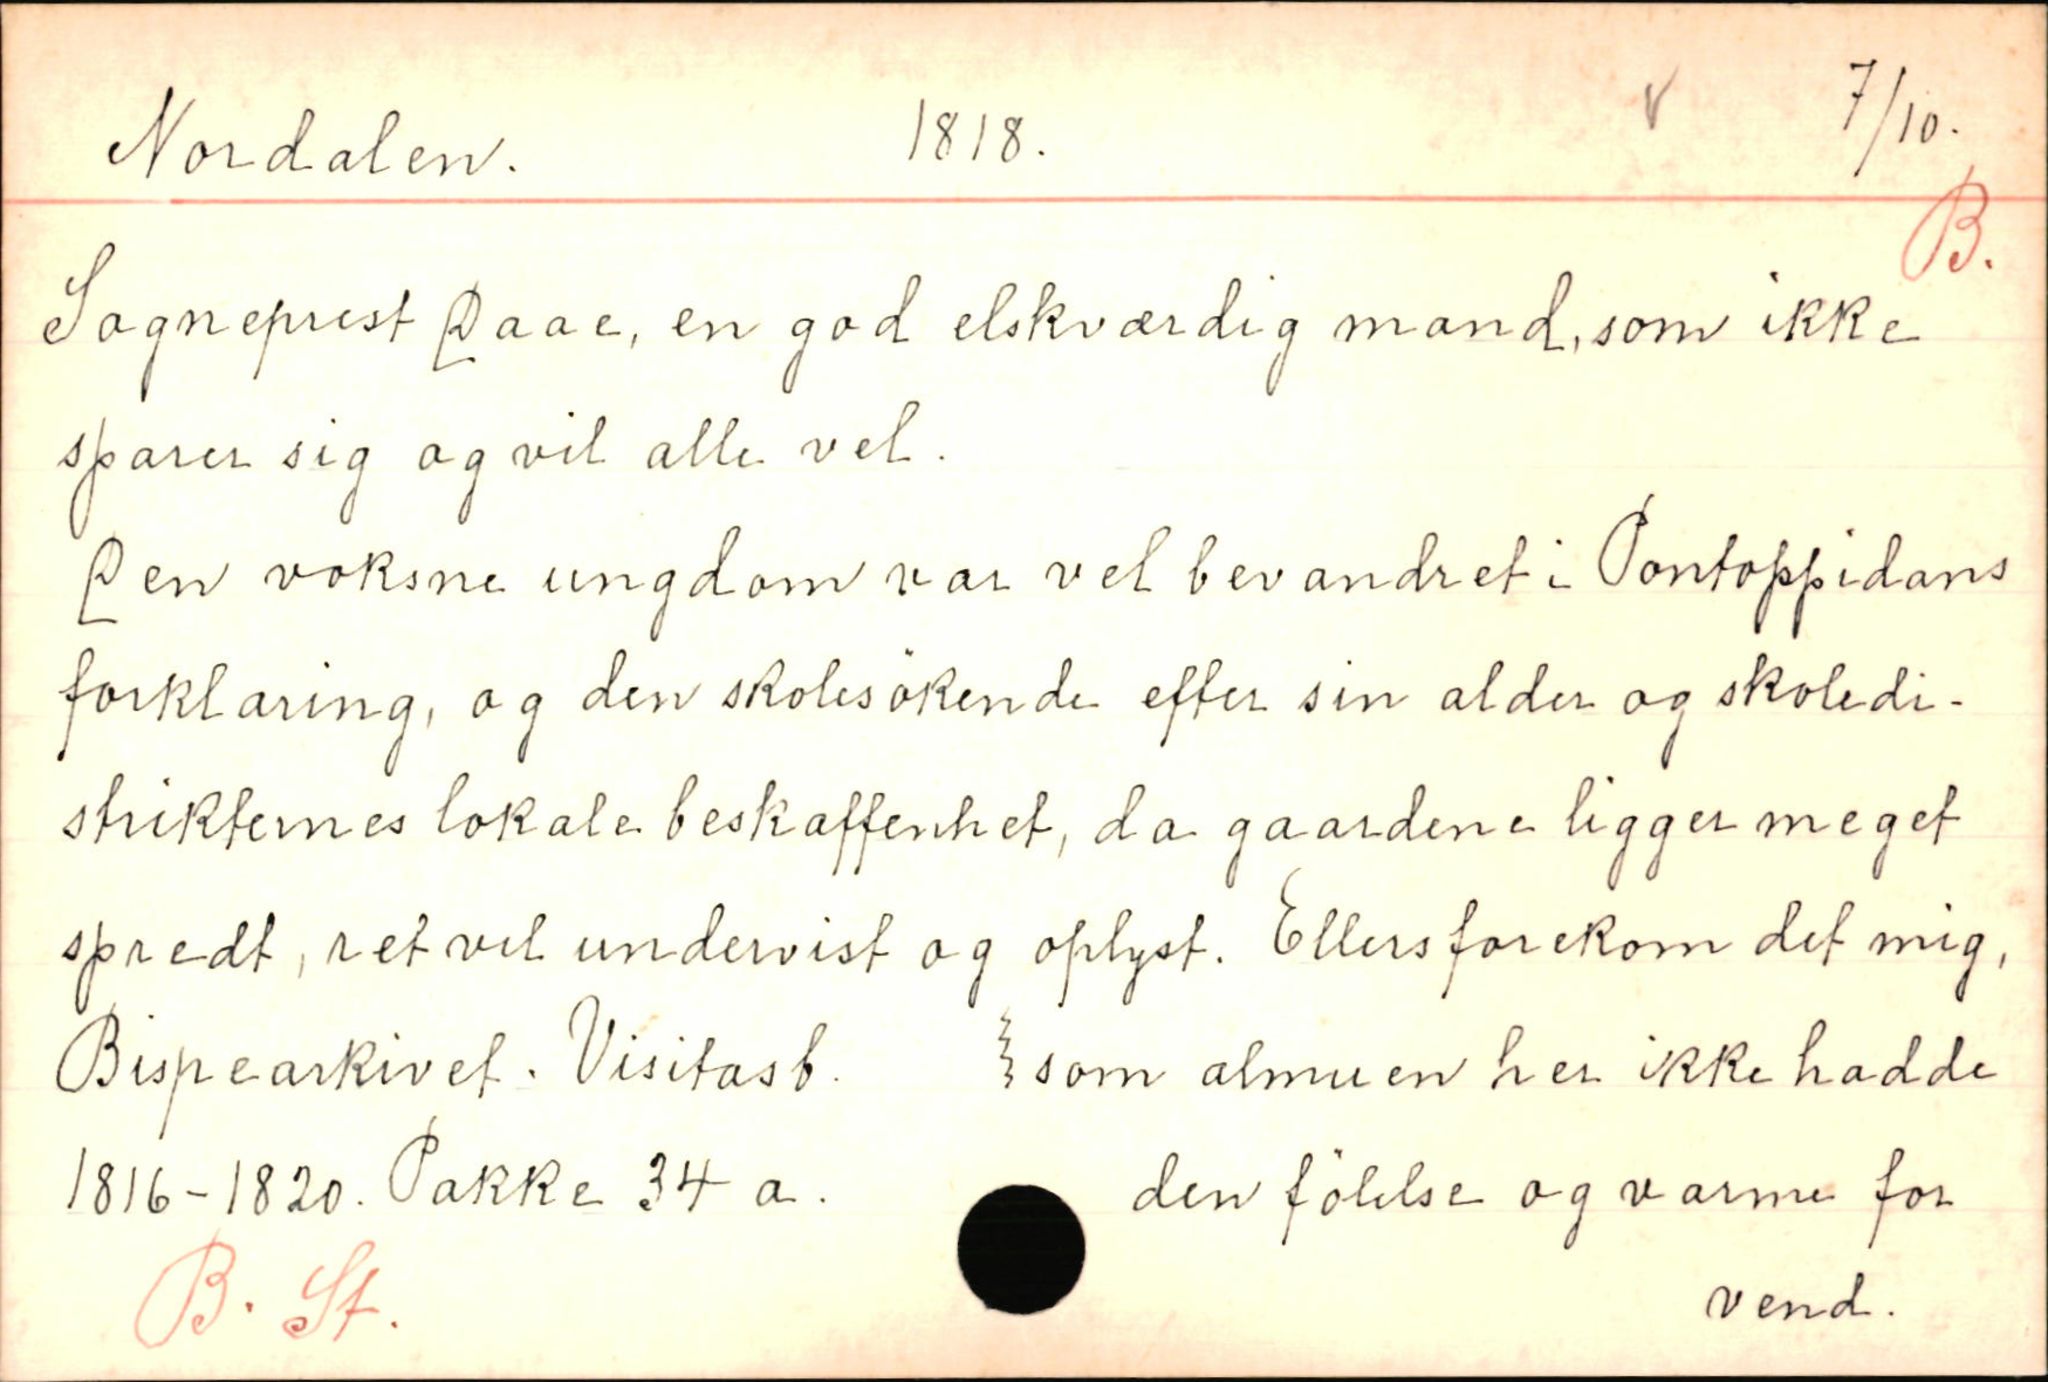 Nordalen. 1818. V 7/10.
B.
Sogneprest Daae, en god elskværdig mand, som ikke
sparer sig og vil alle vel.
Den voksne ungdom var vel bevandret i Pontoppidans
forklaring, og den skolesökende efter sin alder og skoledi-
strikternes lokale beskaffenhet, da gaardene ligger meget
spredt, ret vel undervist og oplyst. Ellers forekom det mig,
Bispearkivet. Visitasb. som almuen her ikke hadde
1816-1820. Pakke 34 a. den fölelse og varme for
B. St. vend.